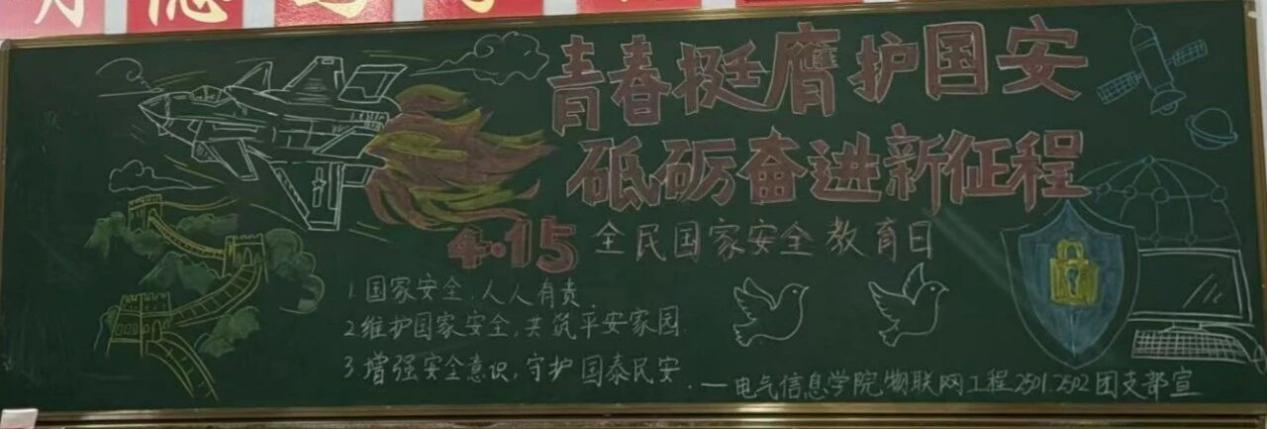 青春挺膺护国安
砥砺奋进新征程
4·15 全民国家安全教育日
1 国家安全,人人有责
2 维护国家安全,共筑平安家园.
3 增强安全意识,守护国泰民安.
—电气信息学院物联网工程2501.2502团支部宣